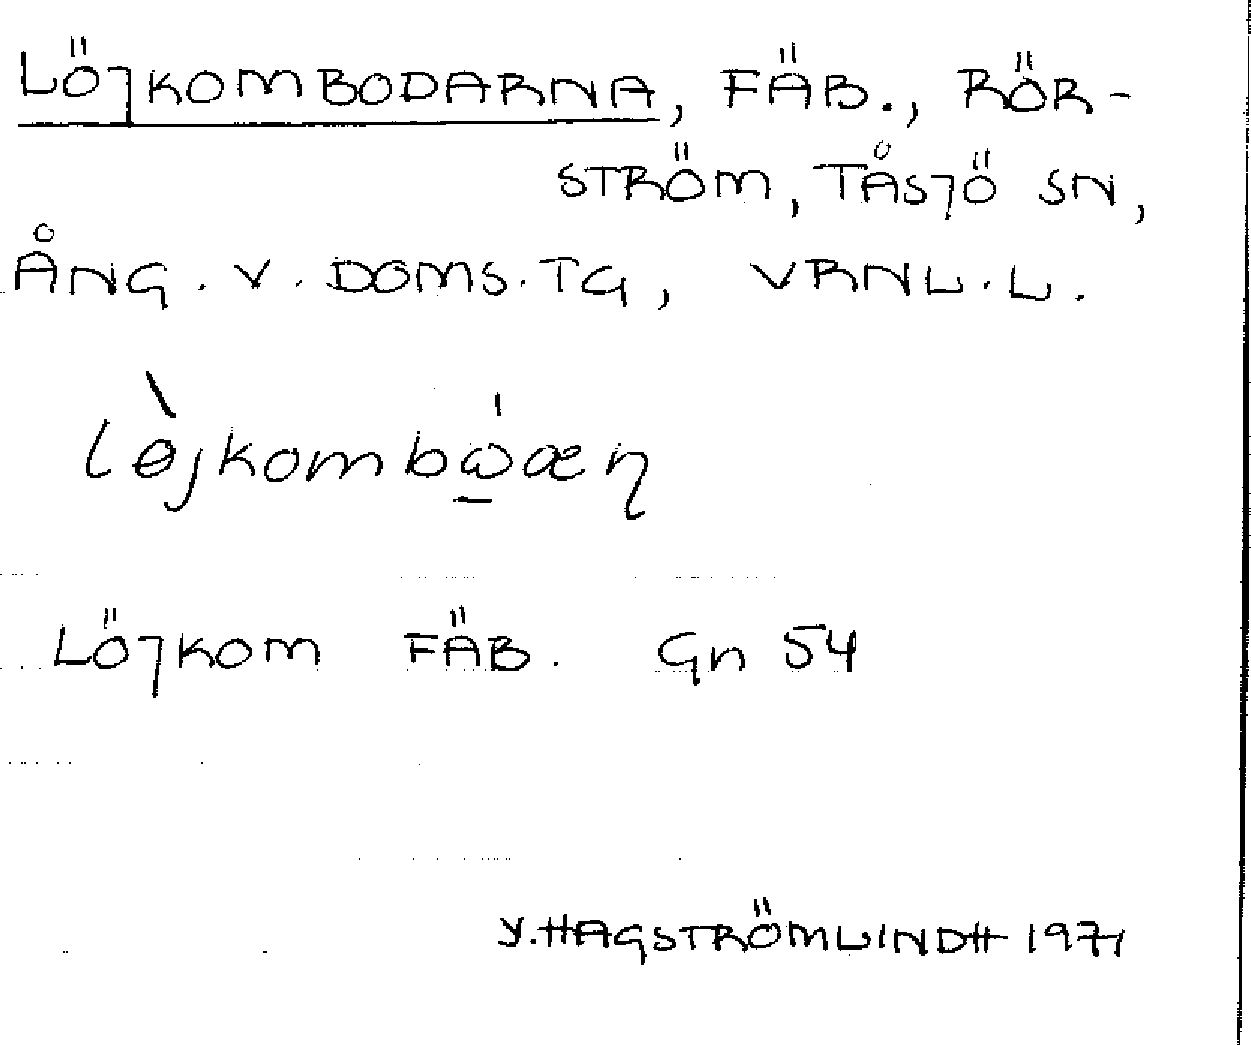 LÖJKOMBODARNA, FÄB., RÖR-
STRÖM, TÅSJÖ SN,
ÅNG. V. DOMS. TG, VRNL. L.
lòjkombώ̱æn̥
LÖJKOM FÄB. Gn 54
Y. HAGSTRÖM LINDH 1971